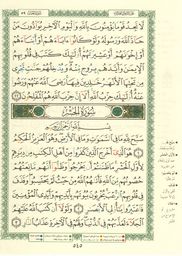 لَّا تَجِدُ قَوْمًا يُؤْمِنُونَ بِاللَّهِ وَالْيَوْمِ الْآخِرِ يُوَادُّونَ مَنْ
حَادَّ اللَّهَ وَرَسُولَهُ وَلَوْ كَانُوا آبَاءَهُمْ أَوْ أَبْنَاءَهُمْ
أَوْ إِخْوَانَهُمْ أَوْ عَشِيرَتَهُمْ أُولَٰئِكَ كَتَبَ فِي قُلُوبِهِمُ
الْإِيمَانَ وَأَيَّدَهُم بِرُوحٍ مِّنْهُ وَيُدْخِلُهُمْ جَنَّاتٍ تَجْرِي
مِن تَحْتِهَا الْأَنْهَارُ خَالِدِينَ فِيهَا رَضِيَ اللَّهُ عَنْهُمْ وَرَضُوا عَنْهُ
أُولَٰئِكَ حِزْبُ اللَّهِ أَلَا إِنَّ حِزْبَ اللَّهِ هُمُ الْمُفْلِحُونَ
سُورَةُ الْحَشْرِ
بِسْمِ اللَّهِ الرَّحْمَٰنِ الرَّحِيمِ
سَبَّحَ لِلَّهِ مَا فِي السَّمَاوَاتِ وَمَا فِي الْأَرْضِ وَهُوَ الْعَزِيزُ الْحَكِيمُ
هُوَ الَّذِي أَخْرَجَ الَّذِينَ كَفَرُوا مِنْ أَهْلِ الْكِتَابِ مِن دِيَارِهِمْ
لِأَوَّلِ الْحَشْرِ مَا ظَنَنتُمْ أَن يَخْرُجُوا وَظَنُّوا أَنَّهُم مَّانِعَتُهُمْ
حُصُونُهُم مِّنَ اللَّهِ فَأَتَاهُمُ اللَّهُ مِنْ حَيْثُ لَمْ يَحْتَسِبُوا وَقَذَفَ
فِي قُلُوبِهِمُ الرُّعْبَ يُخْرِبُونَ بُيُوتَهُم بِأَيْدِيهِمْ وَأَيْدِي الْمُؤْمِنِينَ
فَاعْتَبِرُوا يَا أُولِي الْأَبْصَارِ وَلَوْلَا أَن كَتَبَ اللَّهُ عَلَيْهِمُ
الْجَلَاءَ لَعَذَّبَهُمْ فِي الدُّنْيَا وَلَهُمْ فِي الْآخِرَةِ عَذَابُ النَّارِ
٥٤٥